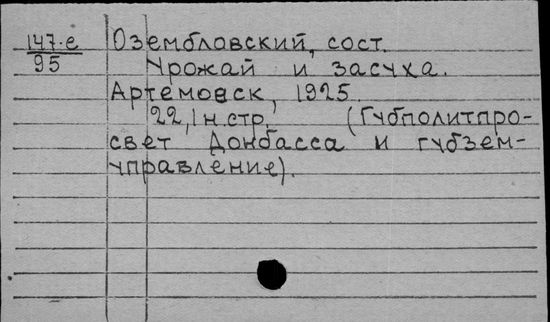 147-е
95
Озембловский, сост.
Урожай и засуха.
Артемовск, 1925.
22, 1 н.стр. (Губполитпро-
свет Донбасса и губзем-
управление).